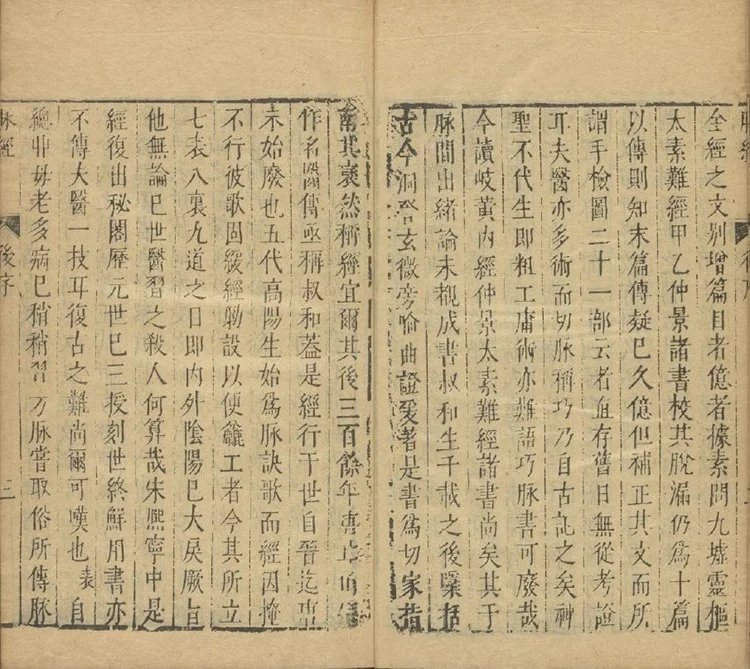 全經之文別增篇目者億者據素問九墟靈樞
太素難經甲乙仲景諸書校其脫漏仍爲十篇
以傳則知末篇傳疑已久億但補正其文而所
謂手檢圖二十一部云者亟存舊目無從考證
耳夫醫亦多術而切脉稱巧乃自古記之矣神
聖不代生即粗工庸術亦難語巧脉書可廢哉
今讀岐黃內經仲景太素難經諸書尚矣其于
脉間出緒論未覩成書叔和生千載之後檃括
古今洞晉玄微旁喻曲證爰著是書爲切家指
南其裒然稱經宜爾其後三百餘年
作名醫傳亟稱叔和蓋是經行于世自晉迄
未始廢也五代高陽生始爲脉訣歌而經因掩
不行彼歌固綴經勦設以便麤工者今其所立
七表八裏九道之目即內外陰陽已大戾厥旨
他無論已世醫習之殺人何算哉宋熙寧中是
經復出秘閣歷元世已三授刻世終鮮用書亦
不傳大醫一技耳復古之難尚爾可嘆也表自
總丱母老多病已稍稍習方脉嘗取俗所傳脉
脉經 後序 三